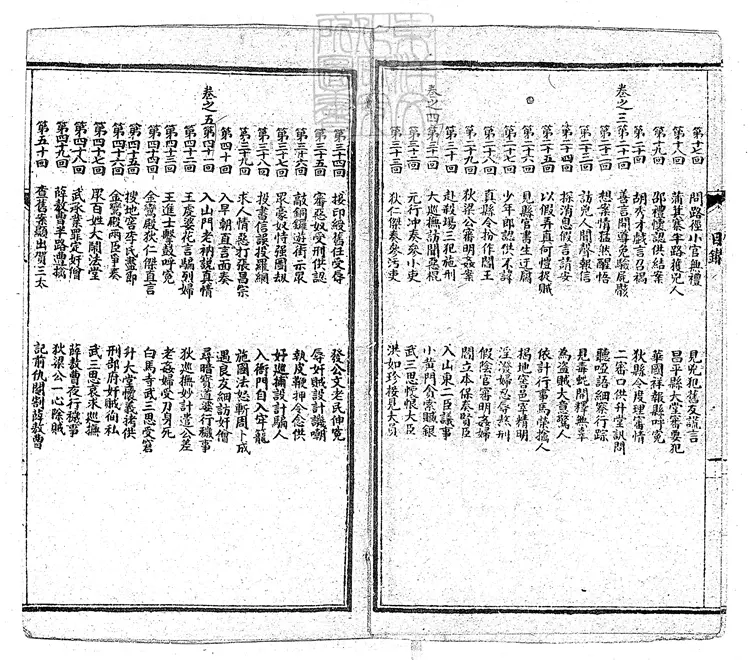 第十七回 問路徑小官無禮 見兇犯舊友謊言
第十八回 蒲其寨半路獲兇人 昌平縣大堂審要犯
第十九回 邵禮懷認供結案 華國祥報縣呼冤
第二十回 胡秀才戲言召禍 狄縣令度理審情
卷之三
第二十一回 善言開導免驗屍骸 二審口供升堂訊問
第二十二回 想案情猛然醒悟 聽啞語細察行踪
第二十三回 訪兇人聞聲報信 見毒蛇開釋無辜
第二十四回 探消息假言請安 為盜賊大意驚人
第二十五回 以假弄真何愷捉賊 依計行事馬榮擒人
第二十六回 見縣官書生迂腐 揭地窖邑宰精明
第二十七回 少年郎認供不諱 淫潑婦忍辱熬刑
第二十八回 真縣令扮作閻王 假陰官審明姦婦
第二十九回 狄梁公審明姦案 閻立本保奏賢臣
第三十回 赴殺場三犯施刑 入山東二臣議事
卷之四
第三十一回 大巡撫訪聞惡棍 小黃門貪索贓銀
第三十二回 元行沖奏參小吏 武三思懷恨大臣
第三十三回 狄仁傑奏參污吏 洪如珍接見大員
目錄
第三十四回 接印綬舊任受辱 發公文老民伸冤
第三十五回 審惡奴受刑供認 辱奸賊設計譏嘲
第三十六回 敲銅鑼遊街示眾 執皮鞭押令念供
第三十七回 眾豪奴恃强圖刼 好巡捕設計騙人
第三十八回 投書信誤投羅網 入衙門自入牢籠
第三十九回 求人情惡打張昌宗 施國法怒斬周卜成
第四十回 入早朝直言面奏 遇良友細訪奸僧
卷之五
第四十一回 入山門老衲說真情 尋暗窨道婆行穢事
第四十二回 王虔婆花言騙烈婦 狄巡撫妙計遣公差
第四十三回 王進士擊鼓呼冤 老姦婦受刀身死
第四十四回 金鑾殿狄仁傑直言 白馬寺武三思受窘
第四十五回 搜地窖李氏盡節 升大堂懷義拷供
第四十六回 金鑾殿兩臣爭奏 刑部府奸賊徇私
第四十七回 眾百姓大鬧法堂 武三思哀求巡撫
第四十八回 武承業罪定奸僧 薛敖曹夜行穢事
第四十九回 薛敖曹半路遭擒 狄梁公一心除賊
第五十回 查舊案顯出賀三太 記前仇閹割薛敖曹